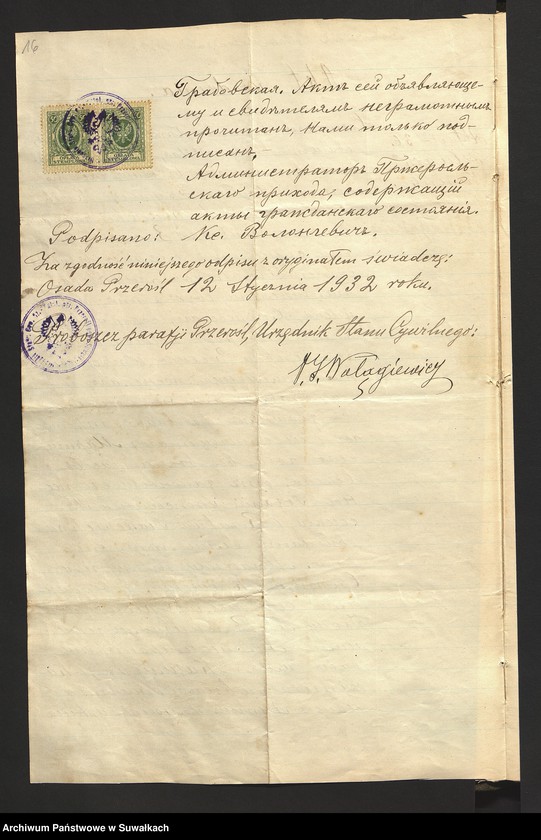 16
Грабовская. Актъ сей объявляюще-
му и свидѣтелямъ неграмотнымъ
прочитанъ, Нами только под-
писанъ.
Администраторъ Пржеросль-
скаго прихода, содержащій
акты гражданскаго состоянія.
Podpisano: Кс. Волончевичъ.
Za zgodność niniejszego odpisu z oryginałem świadczę:
Osada Przerośl 12 Stycznia 1932 roku.
Proboszcz parafji Przerośl, Urzędnik Stanu Cywilnego:
Archiwum Państwowe w Suwałkach